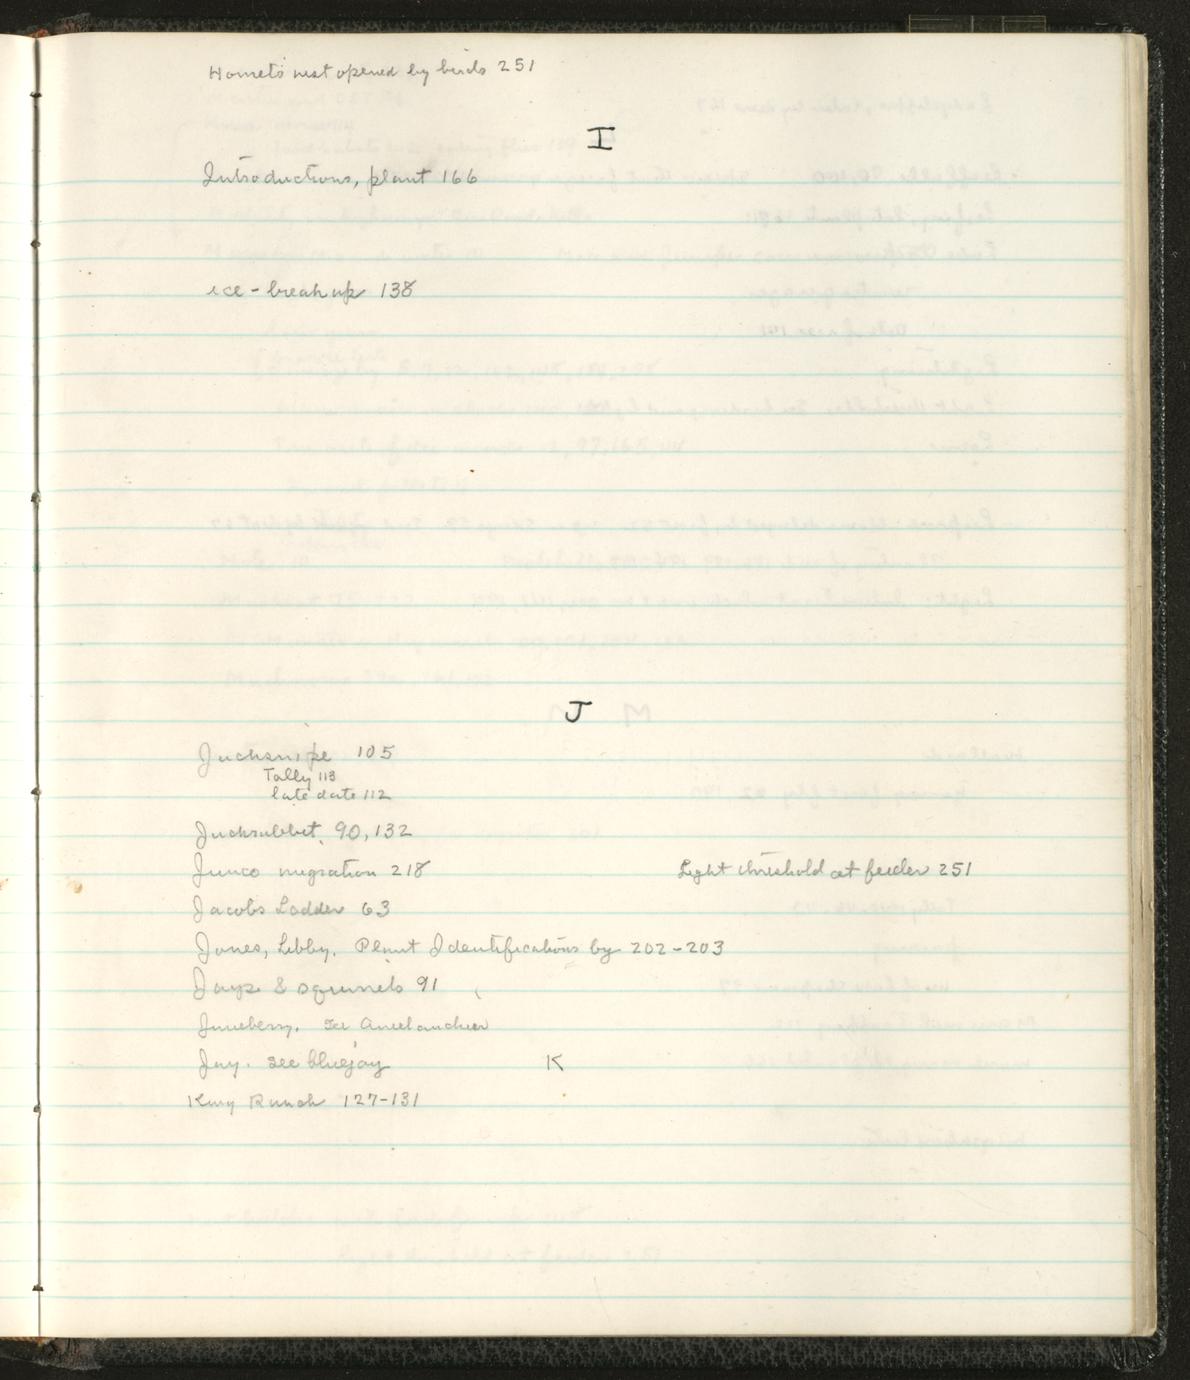 Hornets nest opened by birds 251
I
Introductions, plant 166
ice-breakup 138
J
Jacksnipe 105
Tally 113
late date 112
Jackrabbit, 90, 132
Junco migration 218
Light threshold at feeder 251
Jacobs Ladder 63
Jones, Libby, Plant Identifications by 202-203
Jays & squirrels 91
Juneberry. See Amelanchier
Jay. see bluejay
K
King Ranch 127-131